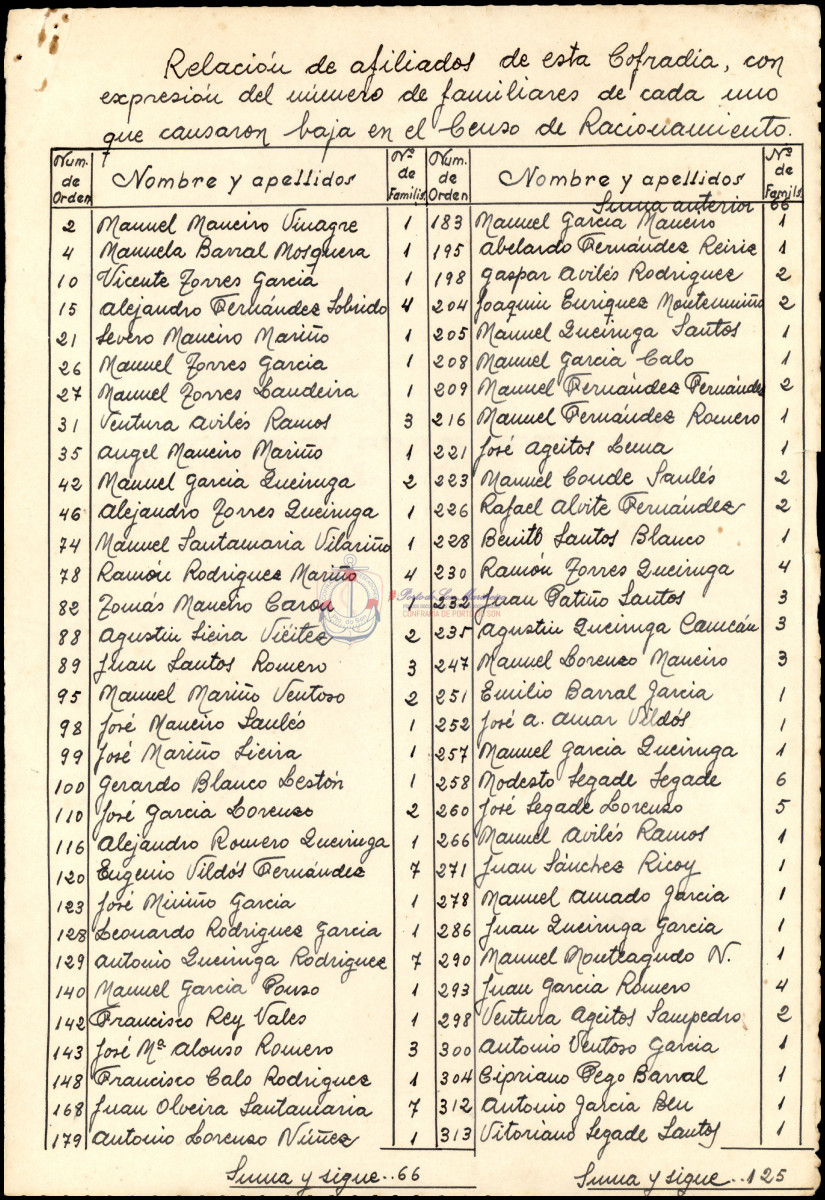 Relación de afiliados de esta Cofradia, con
expresión del número de familiares de cada uno
que causaron baja en el Censo de Racionamiento.
Num. de Orden Nombre y apellidos Nº de Familis.
2 Manuel Maneiro Vinagre 1
4 Manuela Barral Mosquera 1
10 Vicente Torres Garcia 1
15 Alejandro Fernández Sobrido 4
21 Severo Maneiro Mariño 1
26 Manuel Torres Garcia 1
27 Manuel Torres Laudeira 1
31 Ventura Avilés Ramos 3
35 Angel Maneiro Mariño 1
42 Manuel Garcia Queiruga 2
46 Alejandro Torres Queiruga 1
74 Manuel Santamaria Vilariño 1
78 Ramón Rodriguez Mariño 4
82 Tomás Maneiro Carou 1
88 Agustin Sieira Vieitez 2
89 Juan Santos Romero 3
95 Manuel Mariño Ventoso 2
98 José Maneiro Saulés 1
99 José Mariño Sieira 1
100 Gerardo Blanco Lestón 1
110 José Garcia Lorenzo 2
116 Alejandro Romero Queiruga 1
120 Eugenio Vildós Fernández 7
123 José Miniño Garcia 1
128 Leonardo Rodriguez Garcia 1
129 Antonio Queiruga Rodriguez 7
140 Manuel Garcia Pouso 1
142 Francisco Rey Vales 1
143 José Mª Alonso Romero 3
148 Francisco Calo Rodriguez 1
168 Juan Olveira Santamaria 7
179 Antonio Lorenzo Núñez 1
Suma y sigue..66
Num. de Orden Nombre y apellidos Nº de Famjls.
Suma anterior 66
183 Manuel Garcia Maneiro 1
195 Abelardo Fernández Reiriz 1
198 Gaspar Avilés Rodriguez 2
204 Joaquin Enriquez Montemuiño 2
205 Manuel Queiruga Santos 1
208 Manuel Garcia Calo 1
209 Manuel Fernández Fernández 2
216 Manuel Fernández Romero 1
221 José Ageitos Lema 1
223 Manuel Conde Saulés 2
226 Rafael Alvite Fernández 2
228 Benito Santos Blanco 1
230 Ramón Torres Queiruga 4
232 Juan Patiño Santos 3
235 Agustin Queiruga Caucán 3
247 Manuel Lorenzo Maneiro 3
251 Emilio Barral Garcia 1
252 José A. Amar Vildós 1
257 Manuel Garcia Queiruga 1
258 Modesto Segade Segade 6
260 José Segade Lorenzo 5
266 Manuel Avilés Ramos 1
271 Juan Sánchez Ricoy 1
278 Manuel Amado Garcia 1
286 Juan Queiruga Garcia 1
290 Manuel Monteagudo N. 1
293 Juan Garcia Romero 4
298 Ventura Ageitos Sampedro 2
300 Antonio Ventoso Garcia 1
304 Cipriano Pego Barral 1
312 Antonio Garcia Beu 1
313 Vitoriano Segade Santos 1
Suma y sigue..125